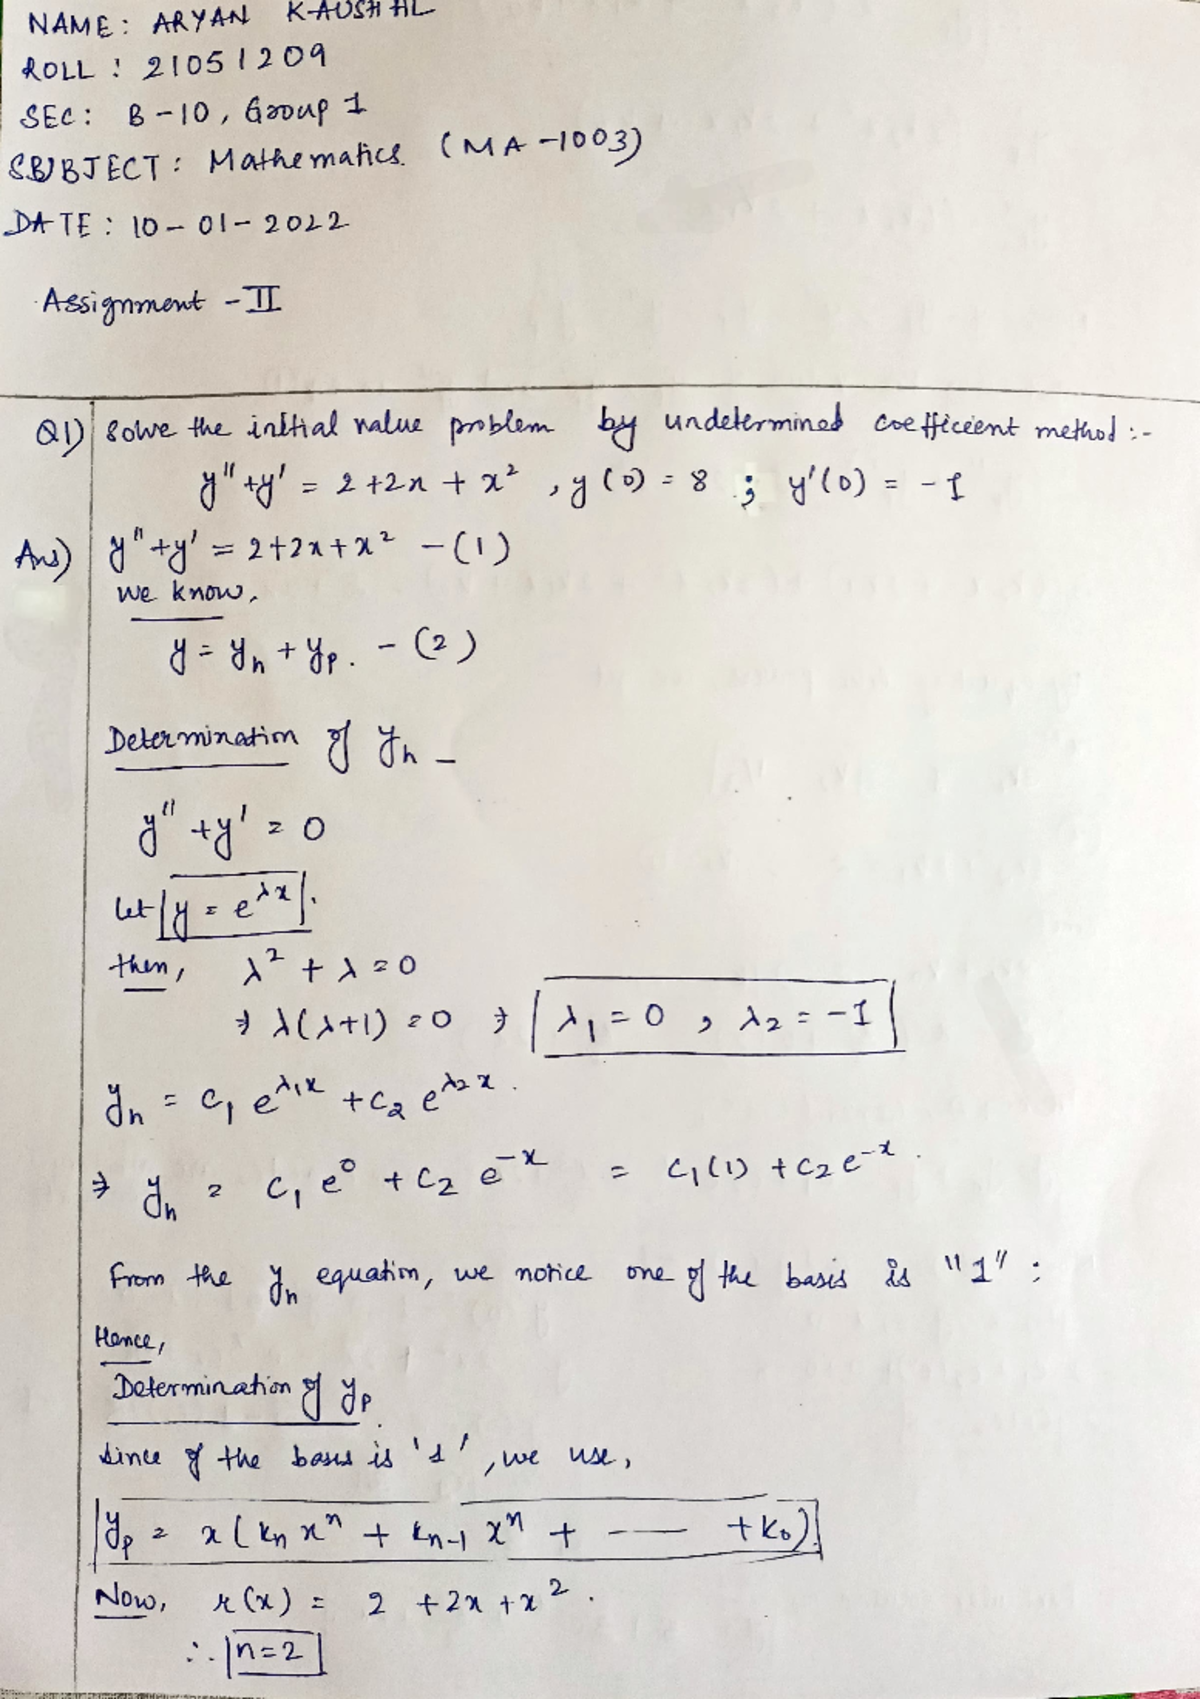 NAME: ARYAN KAUSHAL
ROLL : 21051209
SEC: B-10, Group 1
SUBJECT: Mathematics (MA-1003)
DATE: 10-01-2022
Assignment - II
Q1) Solve the initial value problem by undetermined coefficient method :-
y" + y' = 2+2x + x² , y(0) = 8 ; y'(0) = -1
Ans) y" + y' = 2+2x+x² - (1)
we know,
y = yh + yp. - (2)
Determination of yh -
y" + y' = 0
let y = e^λx.
then, λ² + λ = 0
⇒ λ(λ+1) = 0 ⇒ λ₁ = 0 , λ₂ = -1
yh = c₁ e^λ₁x + c₂ e^λ₂x.
⇒ yh = c₁ e⁰ + c₂ e^-x = c₁(1) + c₂e^-x.
From the yh equation, we notice one of the basis is "1" :
Hence,
Determination of yp
Since of the basis is '1', we use,
yp = x(Kn xⁿ + Kn-1 xⁿ + ---- + K₀).
Now, r(x) = 2 + 2x + x².
∴ n=2